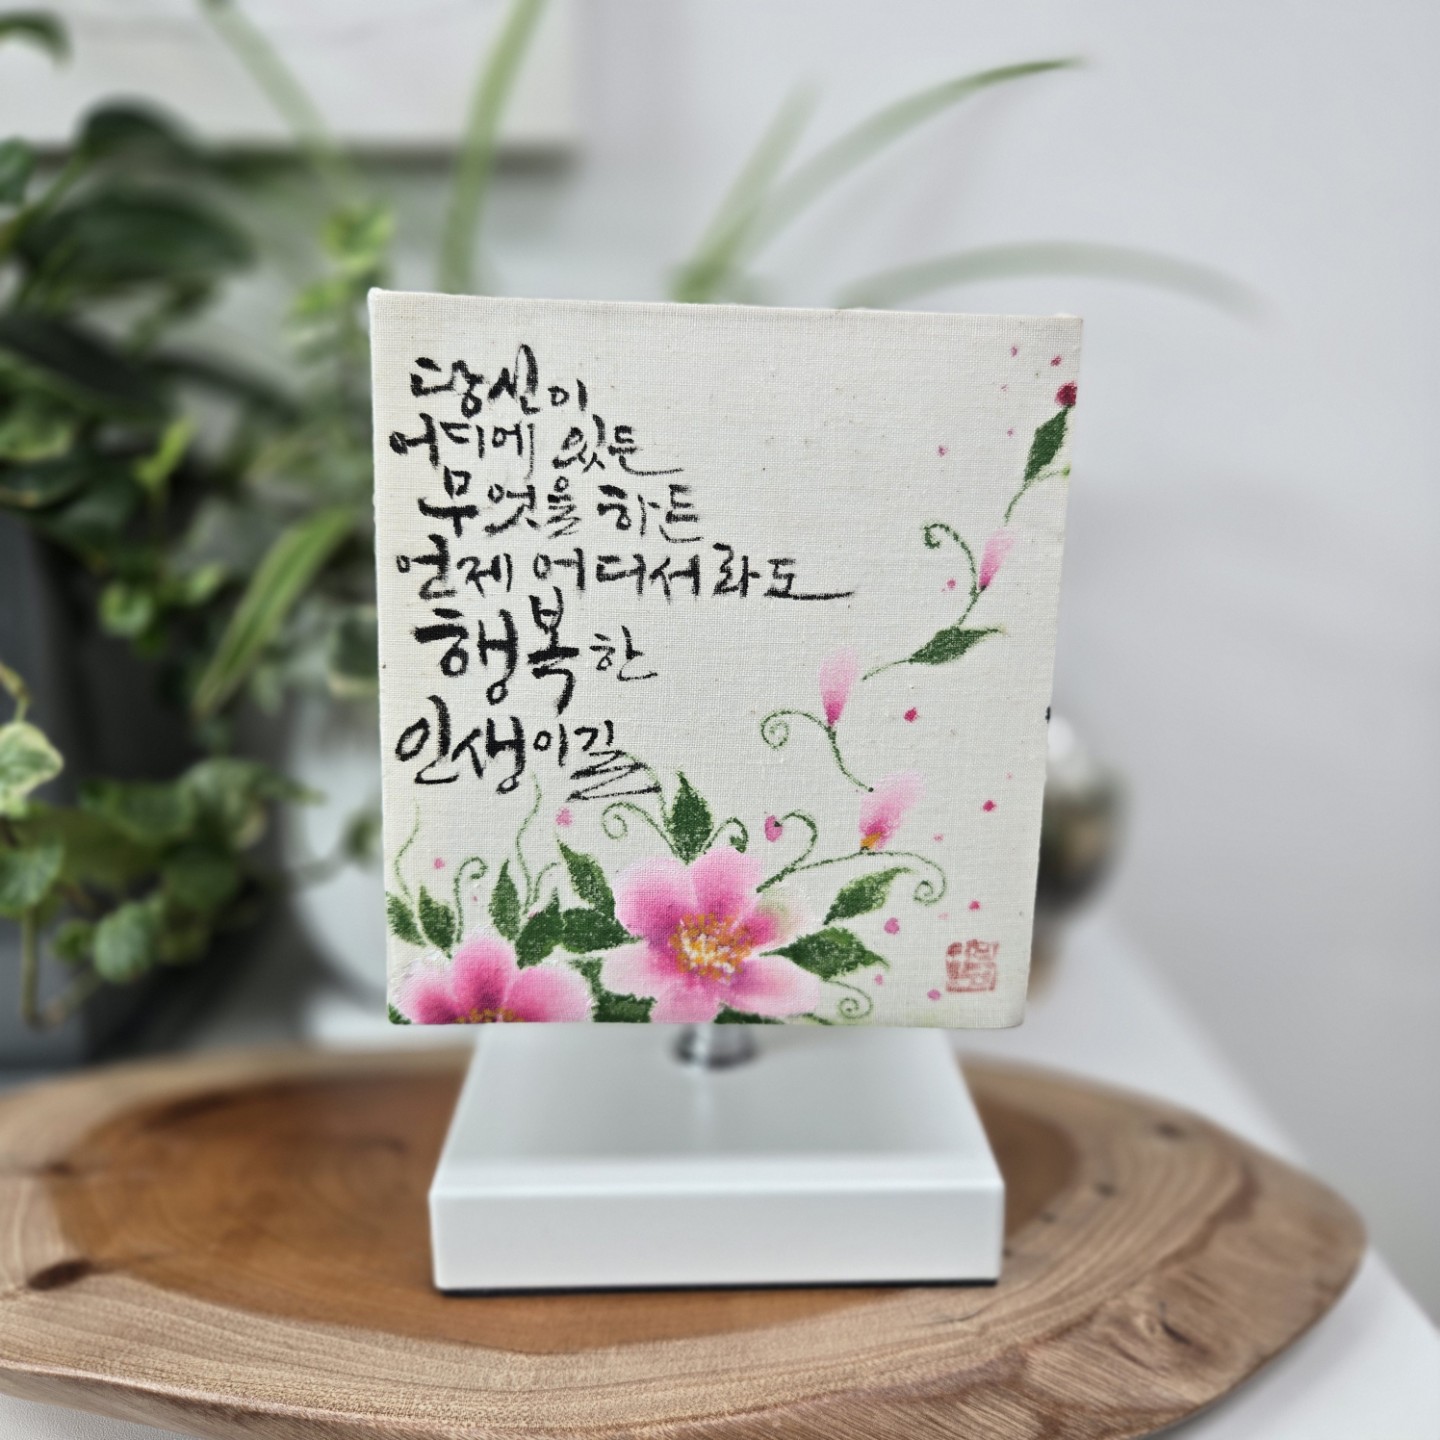 당신이
어디에 있든
무엇을 하든
언제 어디서라도
행복한
인생이길